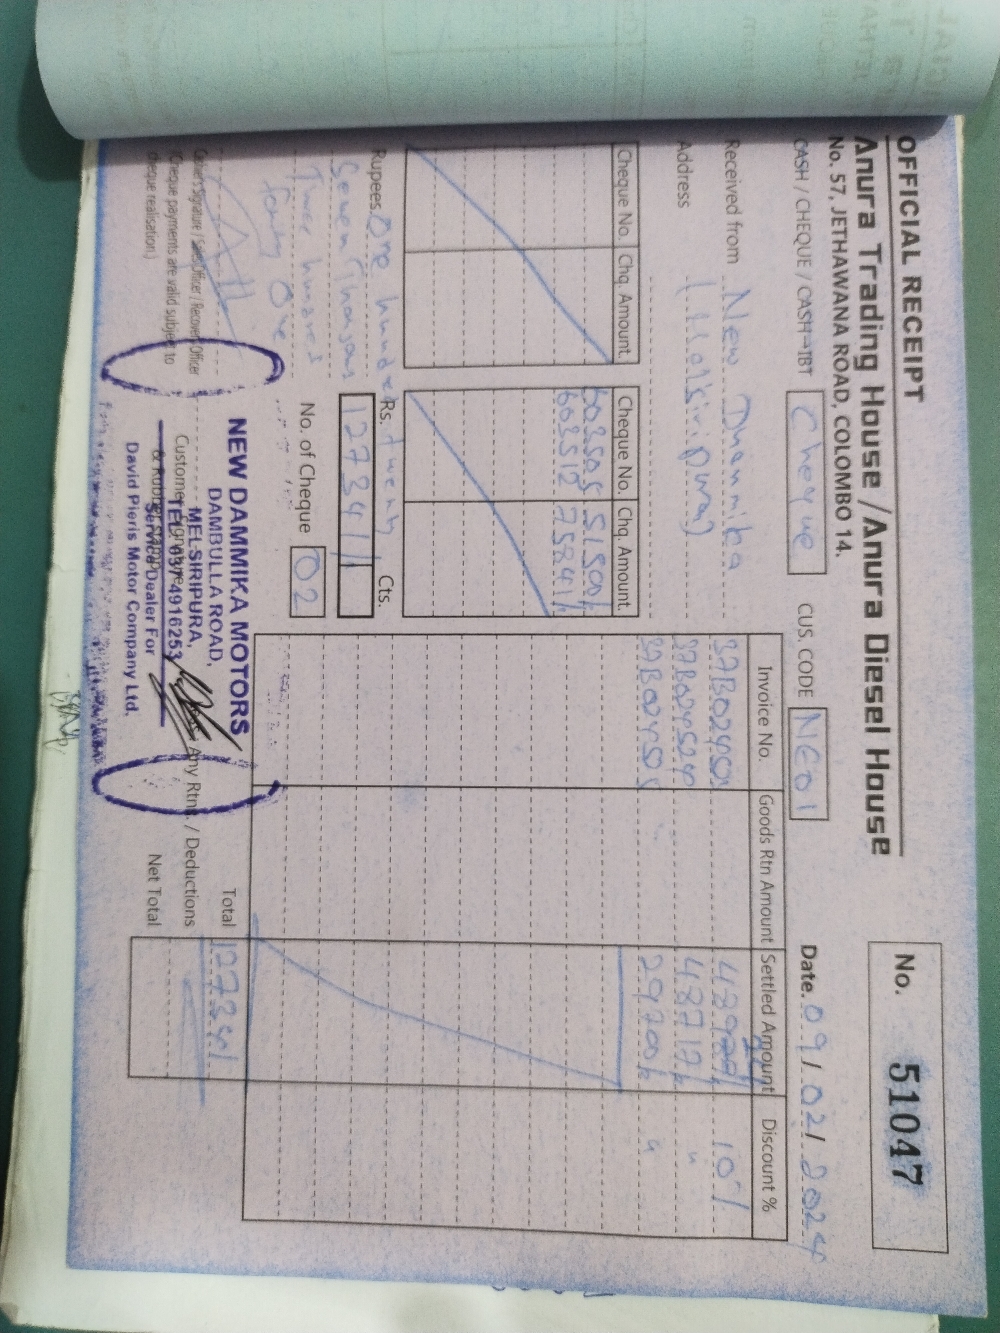 OFFICIAL RECEIPT
No. 51047
Anura Trading House / Anura Diesel House
No. 57, JETHAWANA ROAD, COLOMBO 14.
CASH / CHEQUE / CASH-IBT Cheque CUS. CODE NE01 Date. 09/02/2024
Received from New Dhammika
Address (Melsiripura)
Cheque No. Chq. Amount.
Cheque No. Chq. Amount.
603505 51500/-
603512 75841/-
Invoice No. Goods Rtn Amount Settled Amount Discount %
37B024501 10%
37B024524 48717/- "
37B024505 29700/- "
Rupees One hundred twenty
Seven Thousand
Three hundred
forty One
Rs. Cts.
127341/-
No. of Cheque 02
Total 127341
Any Rtns / Deductions
Net Total
Cashier's Signature / Sales Officer / Recovery Officer
(Cheque payments are valid subject to
cheque realisation.)
Customer Signature
& Rubber Stamp
NEW DAMMIKA MOTORS
DAMBULLA ROAD,
MELSIRIPURA,
TEL: 037 4916253
Service Dealer For
David Pieris Motor Company Ltd.